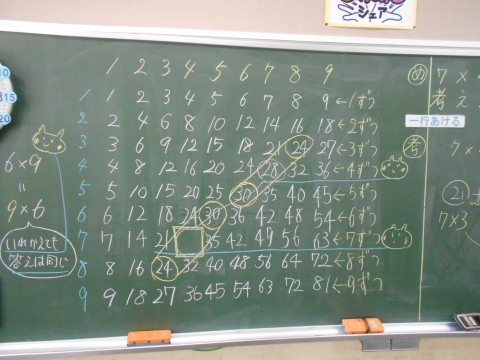 シェア
10
15
20
1 2 3 4 5 6 7 8 9
1 1 2 3 4 5 6 7 8 9 ←1ずつ
2 2 4 6 8 10 12 14 16 18 ←2ずつ
3 3 6 9 12 15 18 21 24 27 ←3ずつ
4 4 8 12 16 20 24 28 32 36 ←4ずつ
5 5 10 15 20 25 30 35 40 45 ←5ずつ
6 6 12 18 24 30 36 42 48 54 ←6ずつ
7 7 14 21 35 42 49 56 63 ←7ずつ
8 8 16 24 32 40 48 56 64 72 ←8ずつ
9 9 18 27 36 45 54 63 72 81 ←9ずつ
6×9
=
9×6
いれかえても
答えは同じ
め 7×
考え
一行あける
7×
21
7×3